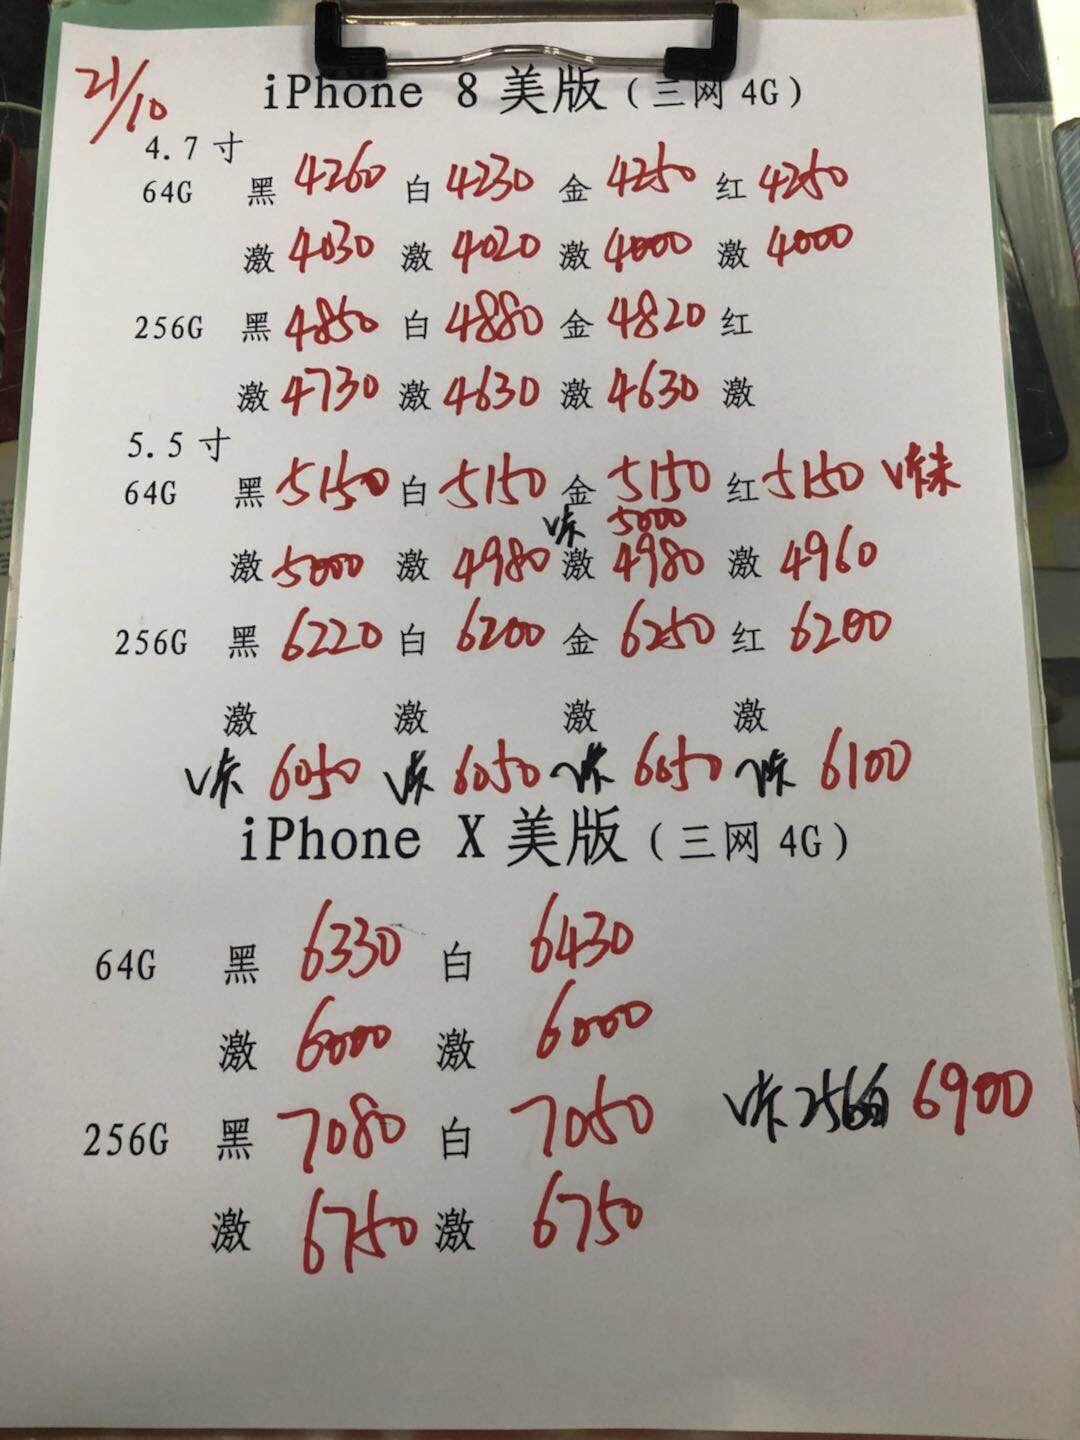 21/10
iPhone 8 美版（三网 4G）
4.7 寸
64G 黑 4260 白 4230 金 4250 红 4250
激 4030 激 4020 激 4000 激 4000
256G 黑 4850 白 4880 金 4820 红
激 4730 激 4630 激 4630 激
5.5 寸
64G 黑 5150 白 5150 金 5150 红 5150
5000
激 5000 激 4980 激 4980 激 4960
256G 黑 6220 白 6200 金 6250 红 6200
激 激 激 激
6050 6050 6050 6100
iPhone X 美版（三网 4G）
64G 黑 6330 白 6430
激 6000 激 6000
256G 黑 7080 白 7050 256 6900
激 6750 激 6750